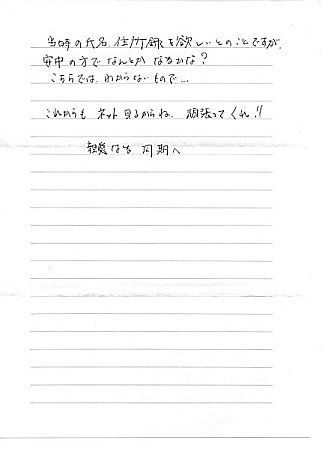 当時の氏名、住所録を欲しいとのことですが、
安中の方でなんとかなるかな?
こちらでは、わからないもので…
これからも ネット見るからね、頑張ってくれ!!
親愛なる 同期へ